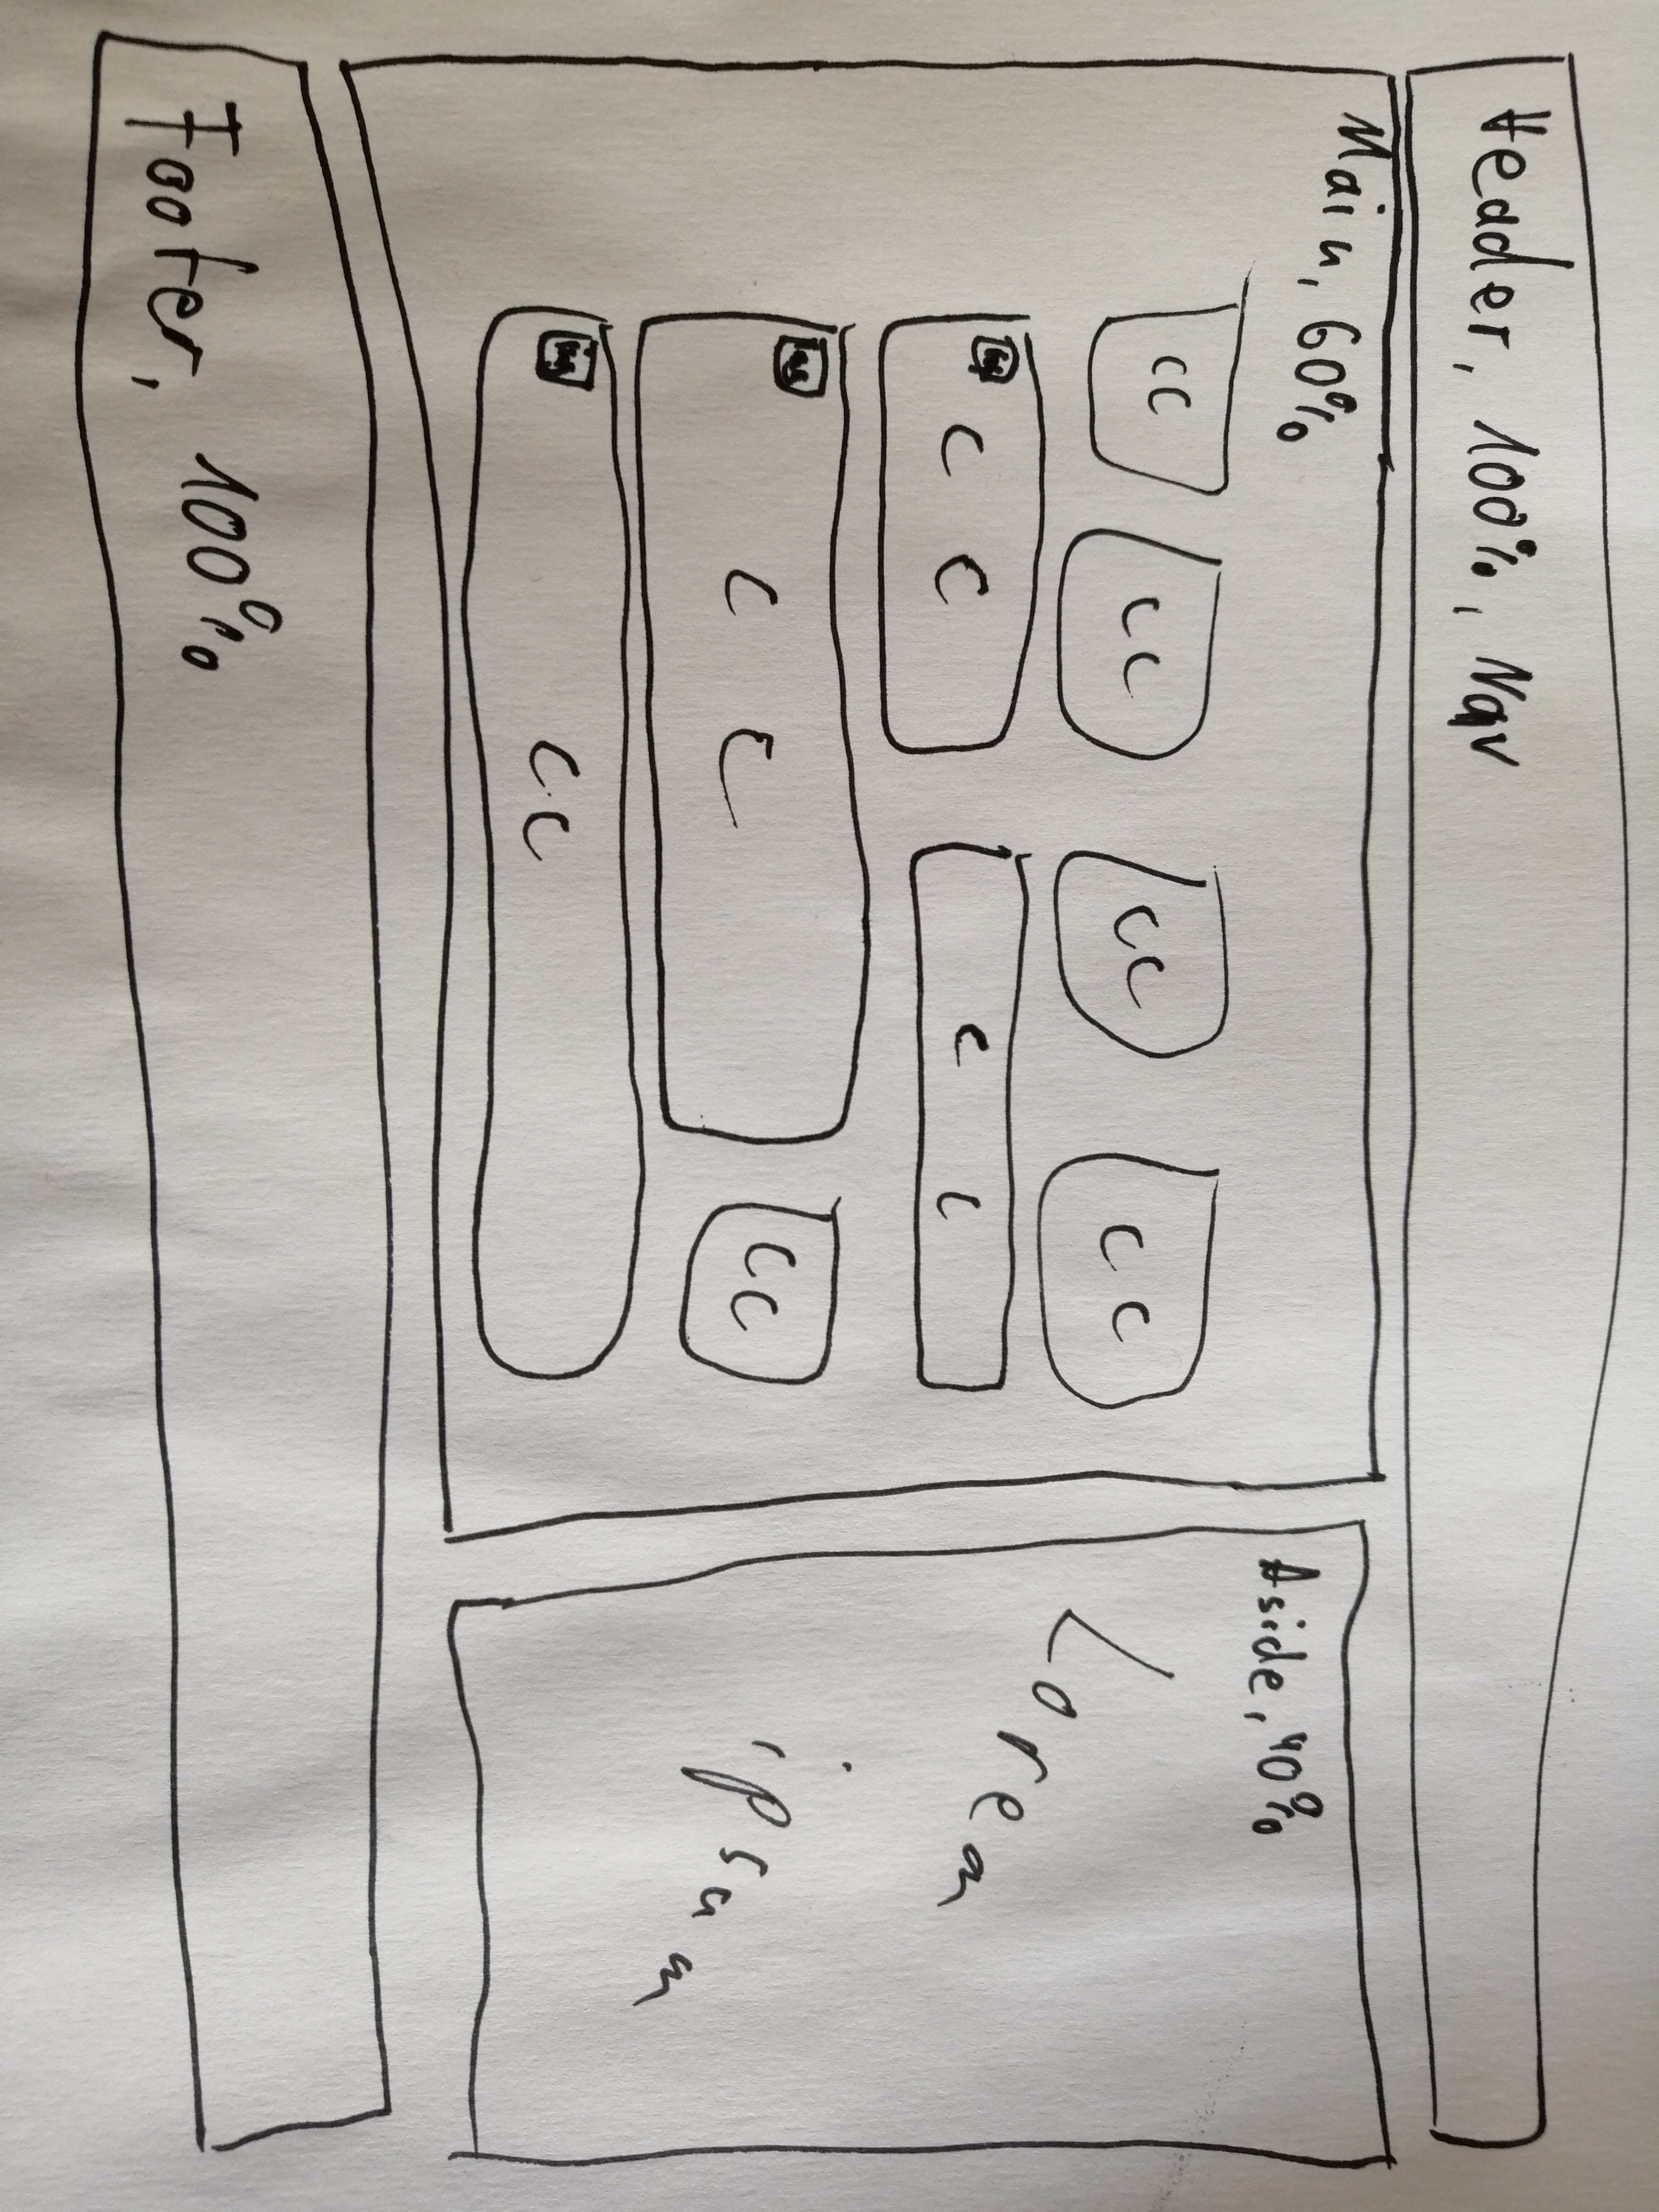 Header, 100%, Nav
Main, 60%
CC
CC
CC
CC
C C
C C
C C
CC
CC
Aside, 40%
Lorem
ipsum
Footer, 100%